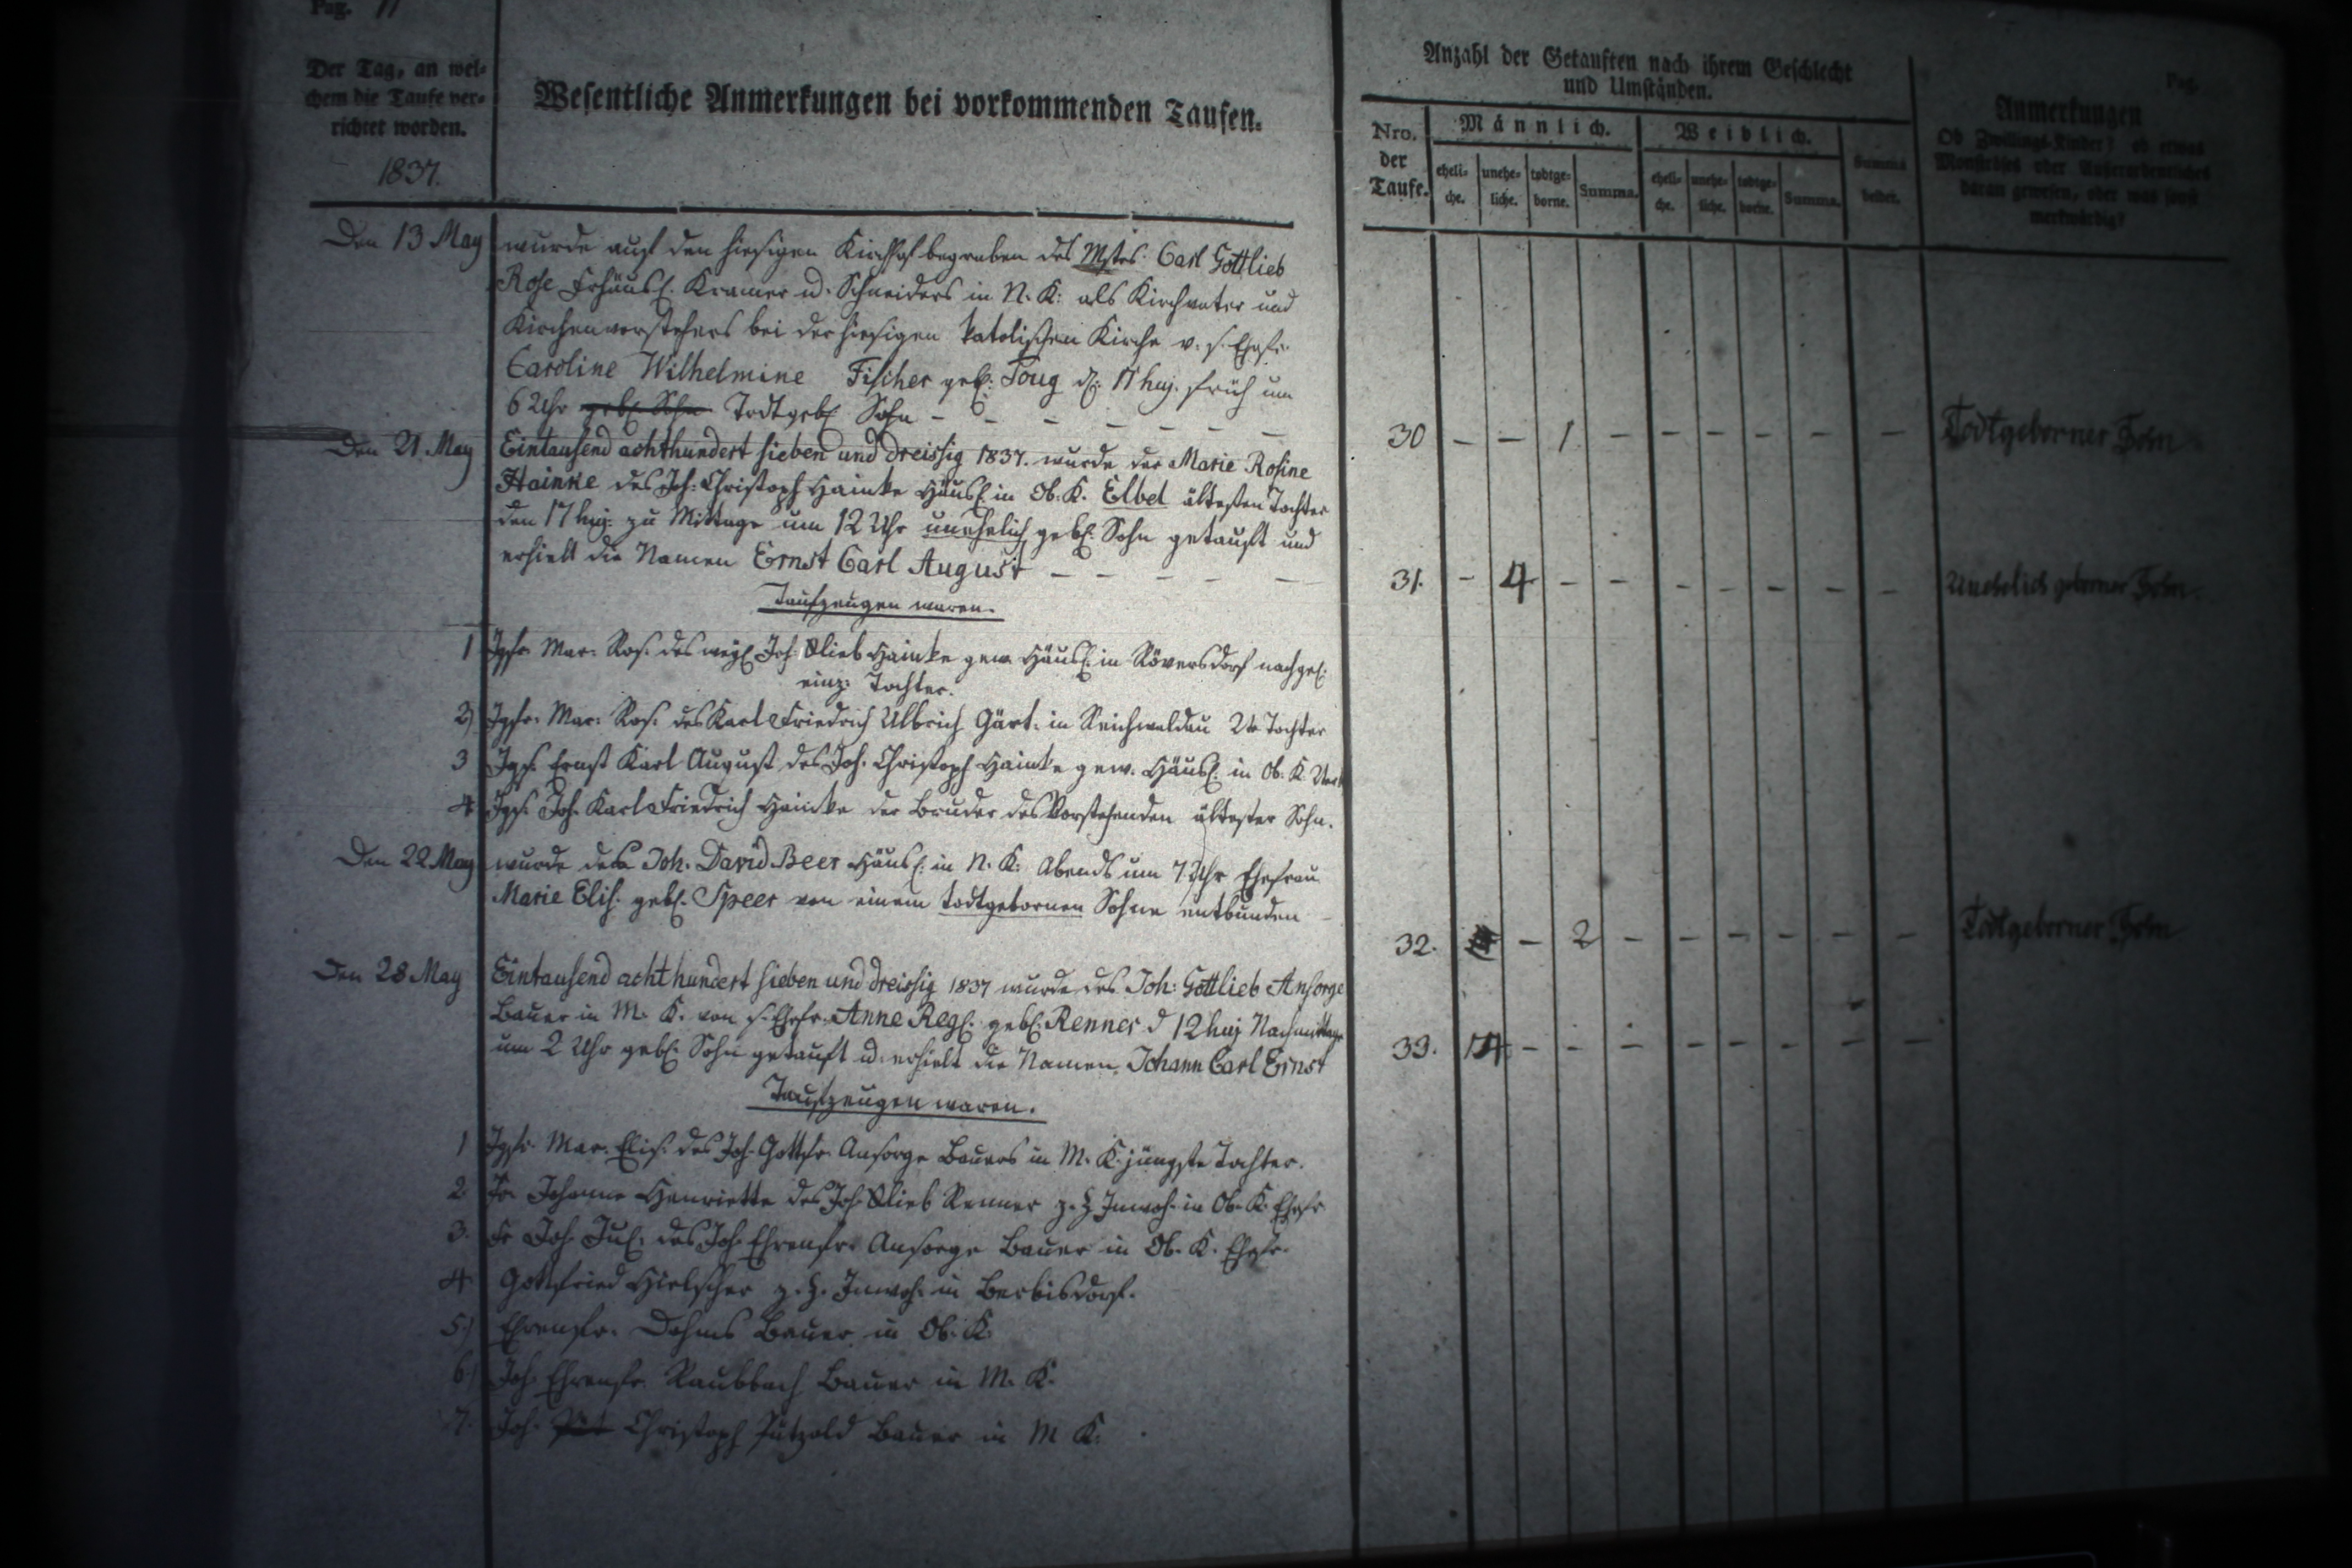 Pag. 11
Der Tag, an wel-
chem die Taufe ver-
richtet worden.
1837.
Wesentliche Anmerkungen bei vorkommenden Taufen.
Anzahl der Getauften nach ihrem Geschlecht
und Umständen.
Nro. der Taufe.
Männlich.
eheli-che. unehe-liche. todtge-borne. Summa.
Weiblich.
eheli-che. unehe-liche. todtge-borne. Summa.
Summa beider.
Pag.
Anmerkungen
Ob Zwillings-Kinder? ob etwas
Monströses oder Außerordentliches
daran gewesen, oder was sonst
merkwürdig?
Den 13 May wurde auf den hiesigen Kirchhof begraben des Mstrs. Carl Gottlieb
Rose Kramer u. Schneiders in N. K: als Kirchvater und
Kirchenvorstehers bei der hiesigen katolischen Kirche v. s. Ehefr.
Caroline Wilhelmine Fischer geb: d: 17 huj. früh um
6 Uhr geb. Sohn Todtgeb. Sohn – – – – – –
30 – – 1 – – – – – – Todtgeborner Sohn
Den 21. May Eintausend achthundert sieben und dreissig 1837. wurde der Marie Rosine
Hainke des Joh: Christoph Hainke Häusl: in Ob. K. Elbel ältesten Tochter
den 17 huj: zu Mittage um 12 Uhr unehelich geb: Sohn getauft und
erhielt die Namen Ernst Carl August – – – – –
31. – 4 – – – – – – – Unehelich geborner Sohn
Taufzeugen waren.
1 Jgfr. Mar: Ros. des weyl. Joh. Glieb Hainke gew. Häusl: in Röversdorf nachgel:
einz: Tochter.
2) Jgfr. Mar: Ros. des Karl Friedrich Ulbrich Gärt: in Reichwaldau 2te Tochter
3 Jgs. Ernst Karl August des Joh. Christoph Hainke gew. Häusl. in Ob. K.
4 Jgs. Joh. Karl Friedrich Hainke der Bruder des Vorstehenden ältester Sohn.
Den 22 May wurde des Joh. David Beer Häusl: in N. K: Abends um 7 Uhr Ehefrau
Marie Elis. geb. Speer von einem todtgebornen Sohne entbunden –
32. – 2 – – – – – – Todtgeborner Sohn
Den 28 May Eintausend achthundert sieben und dreissig 1837 wurde des Joh: Gottlieb Ansorge
Bauer in M. K. von s. Ehefr. Anne Reg. geb. Renner d 12 huj Nachmittage
um 2 Uhr geb. Sohn getauft u. erhielt die Namen Johann Carl Ernst
33. 14 – – – – – – – –
Taufzeugen waren.
1 Jgfr. Mar. Elis. des Joh. Gottfr. Ansorge Bauers in M. K. jüngste Tochter.
2. Fr. Johanne Henriette des Joh. Glieb Renner z. Z Inwoh. in Ob. K. Ehefr.
3. Fr Joh. Jul. des Joh Ehrenfr. Ansorge Bauer in Ob. K. Ehefr.
4 Gottfried Hielscher z. Z. Inwoh. in Berbisdorf.
5.) Ehrenfr. Bauer in Ob. K.
6.) Joh. Ehrenfr. Raubbach Bauer in M. K.
7. Joh. Christoph Pätzold Bauer in M K.